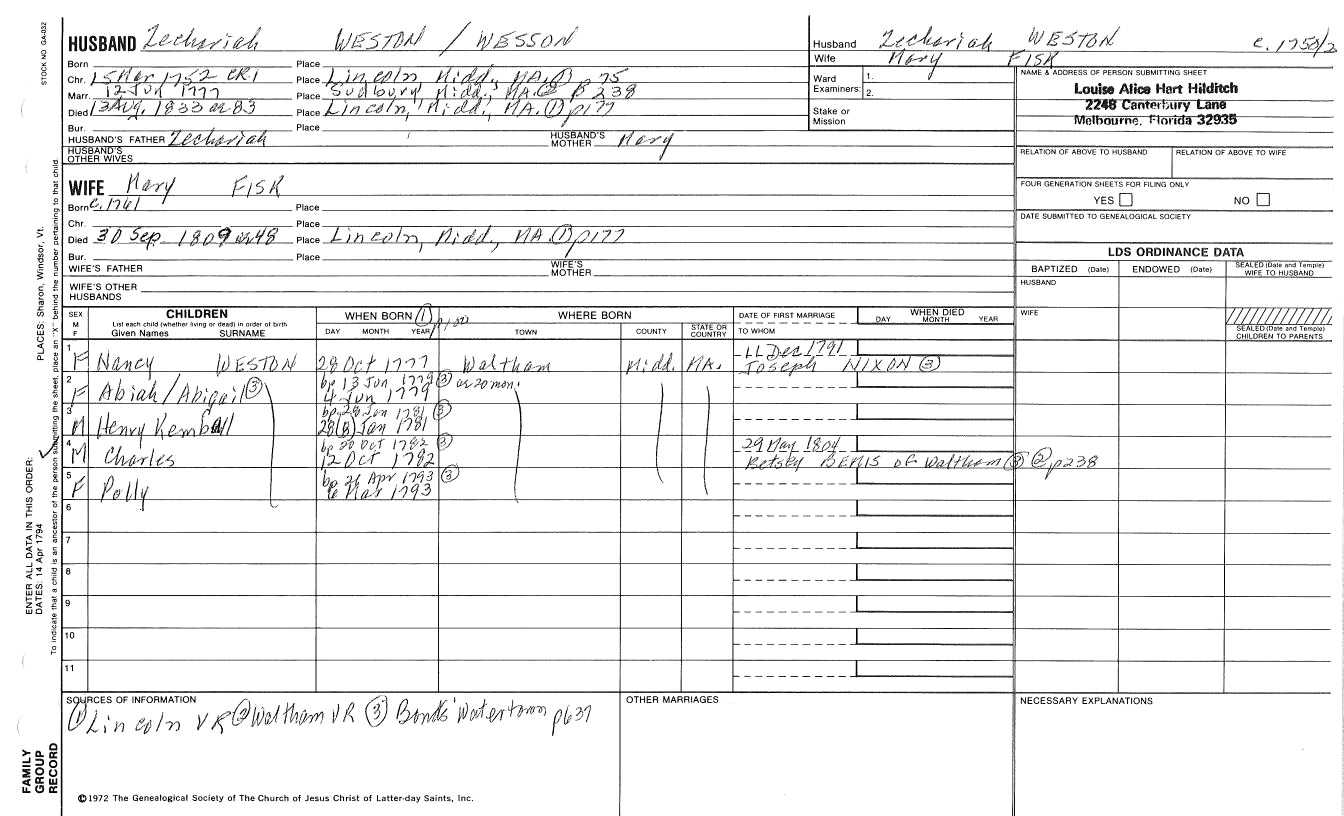 STOCK NO. GA-032
HUSBAND Zechariah WESTON / WESSON
Born Place
Chr. 15 Mar 1752 CR1 Place Lincoln, Midd., MA. ① p 75
Marr. 12 Jun 1777 Place Sudbury, Midd., MA. ② p 238
Died 13 Aug. 1833 ae 83 Place Lincoln, Midd., MA. ① p177
Bur. Place
HUSBAND'S FATHER Zechariah HUSBAND'S MOTHER Mary
HUSBAND'S OTHER WIVES
WIFE Mary FISK
Born c. 1761 Place
Chr. Place
Died 30 Sep. 1809 ae 48 Place Lincoln, Midd., MA. ① p177
Bur. Place
WIFE'S FATHER WIFE'S MOTHER
WIFE'S OTHER HUSBANDS
Husband Zechariah WESTON c. 1750/2
Wife Mary FISK
Ward Examiners: 1. 2.
Stake or Mission
NAME & ADDRESS OF PERSON SUBMITTING SHEET
Louise Alice Hart Hilditch
2248 Canterbury Lane
Melbourne, Florida 32935
RELATION OF ABOVE TO HUSBAND RELATION OF ABOVE TO WIFE
FOUR GENERATION SHEETS FOR FILING ONLY
YES NO
DATE SUBMITTED TO GENEALOGICAL SOCIETY
LDS ORDINANCE DATA
BAPTIZED (Date) ENDOWED (Date) SEALED (Date and Temple) WIFE TO HUSBAND
HUSBAND
WIFE
SEALED (Date and Temple) CHILDREN TO PARENTS
SEX M F
CHILDREN
List each child (whether living or dead) in order of birth
Given Names SURNAME
WHEN BORN ①
DAY MONTH YEAR
WHERE BORN
TOWN COUNTY STATE OR COUNTRY
DATE OF FIRST MARRIAGE
TO WHOM
WHEN DIED
DAY MONTH YEAR
1 F Nancy WESTON 28 Oct 1777 Waltham Midd. MA. 11 Dec 1791
Joseph NIXON ③
2 F Abiah/Abigail ③ bp 13 Jun 1779 ③ ae 20 mon.
4 Jun 1779
3 M Henry Kemball bp 28 Jan 1781 ③
28(8) Jan 1781
4 M Charles bp 20 Oct 1782 ③ 29 May 1804
12 Oct 1782 Betsey BEMIS of Waltham ③ ② p238
5 F Polly bp 21 Apr 1793 ③
6 Mar 1793
6
7
8
9
10
11
SOURCES OF INFORMATION
① Lincoln VR ② Waltham VR ③ Bonds' Watertown p637
OTHER MARRIAGES
NECESSARY EXPLANATIONS
©1972 The Genealogical Society of The Church of Jesus Christ of Latter-day Saints, Inc.
FAMILY GROUP RECORD
ENTER ALL DATA IN THIS ORDER:
DATES: 14 Apr 1794
PLACES: Sharon, Windsor, Vt.
To indicate that a child is an ancestor of the person submitting the sheet, place an "X" behind the number pertaining to that child